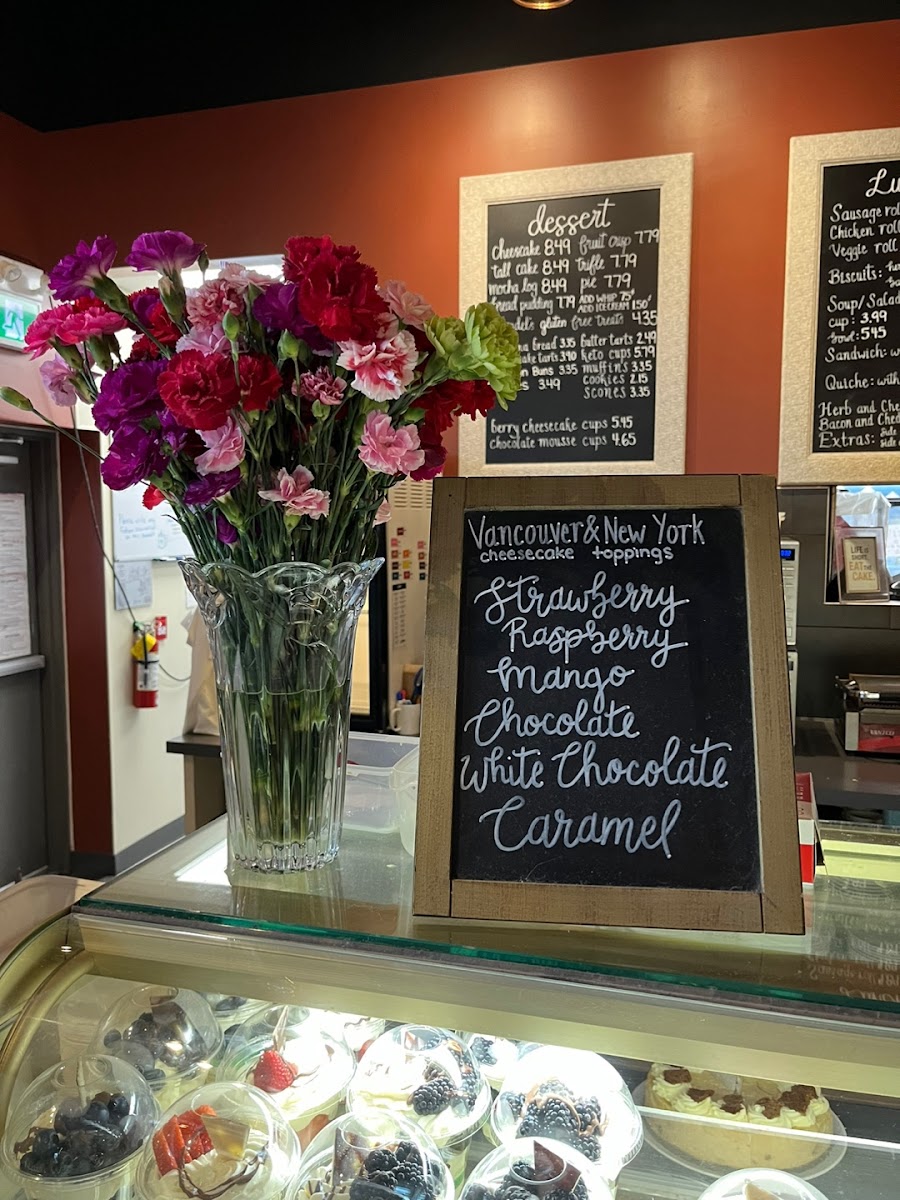 dessert
cheesecake 8.49 fruit crisp 7.79
tall cake 8.49 trifle 7.79
mocha log 8.49 pie 7.79
bread pudding 7.79 ADD WHIP .75
ADD ICECREAM 1.50
gluten free treats 4.35
bread 3.35 butter tarts 2.49
tarts 3.40 keto cups 5.79
Buns 3.35 muffins 3.35
3.49 cookies 2.15
scones 3.35
berry cheesecake cups 5.45
chocolate mousse cups 4.65
Lu
Sausage rol
Chicken roll
Veggie roll
Biscuits:
Soup/Salad
cup: 3.99
bowl: 5.45
Sandwich: w
Quiche: with
Herb and Che
Bacon and Ched
Extras: Side
Side
Vancouver & New York
cheesecake toppings
Strawberry
Raspberry
Mango
Chocolate
White Chocolate
Caramel
LIFE IS
SHORT,
EAT THE
CAKE